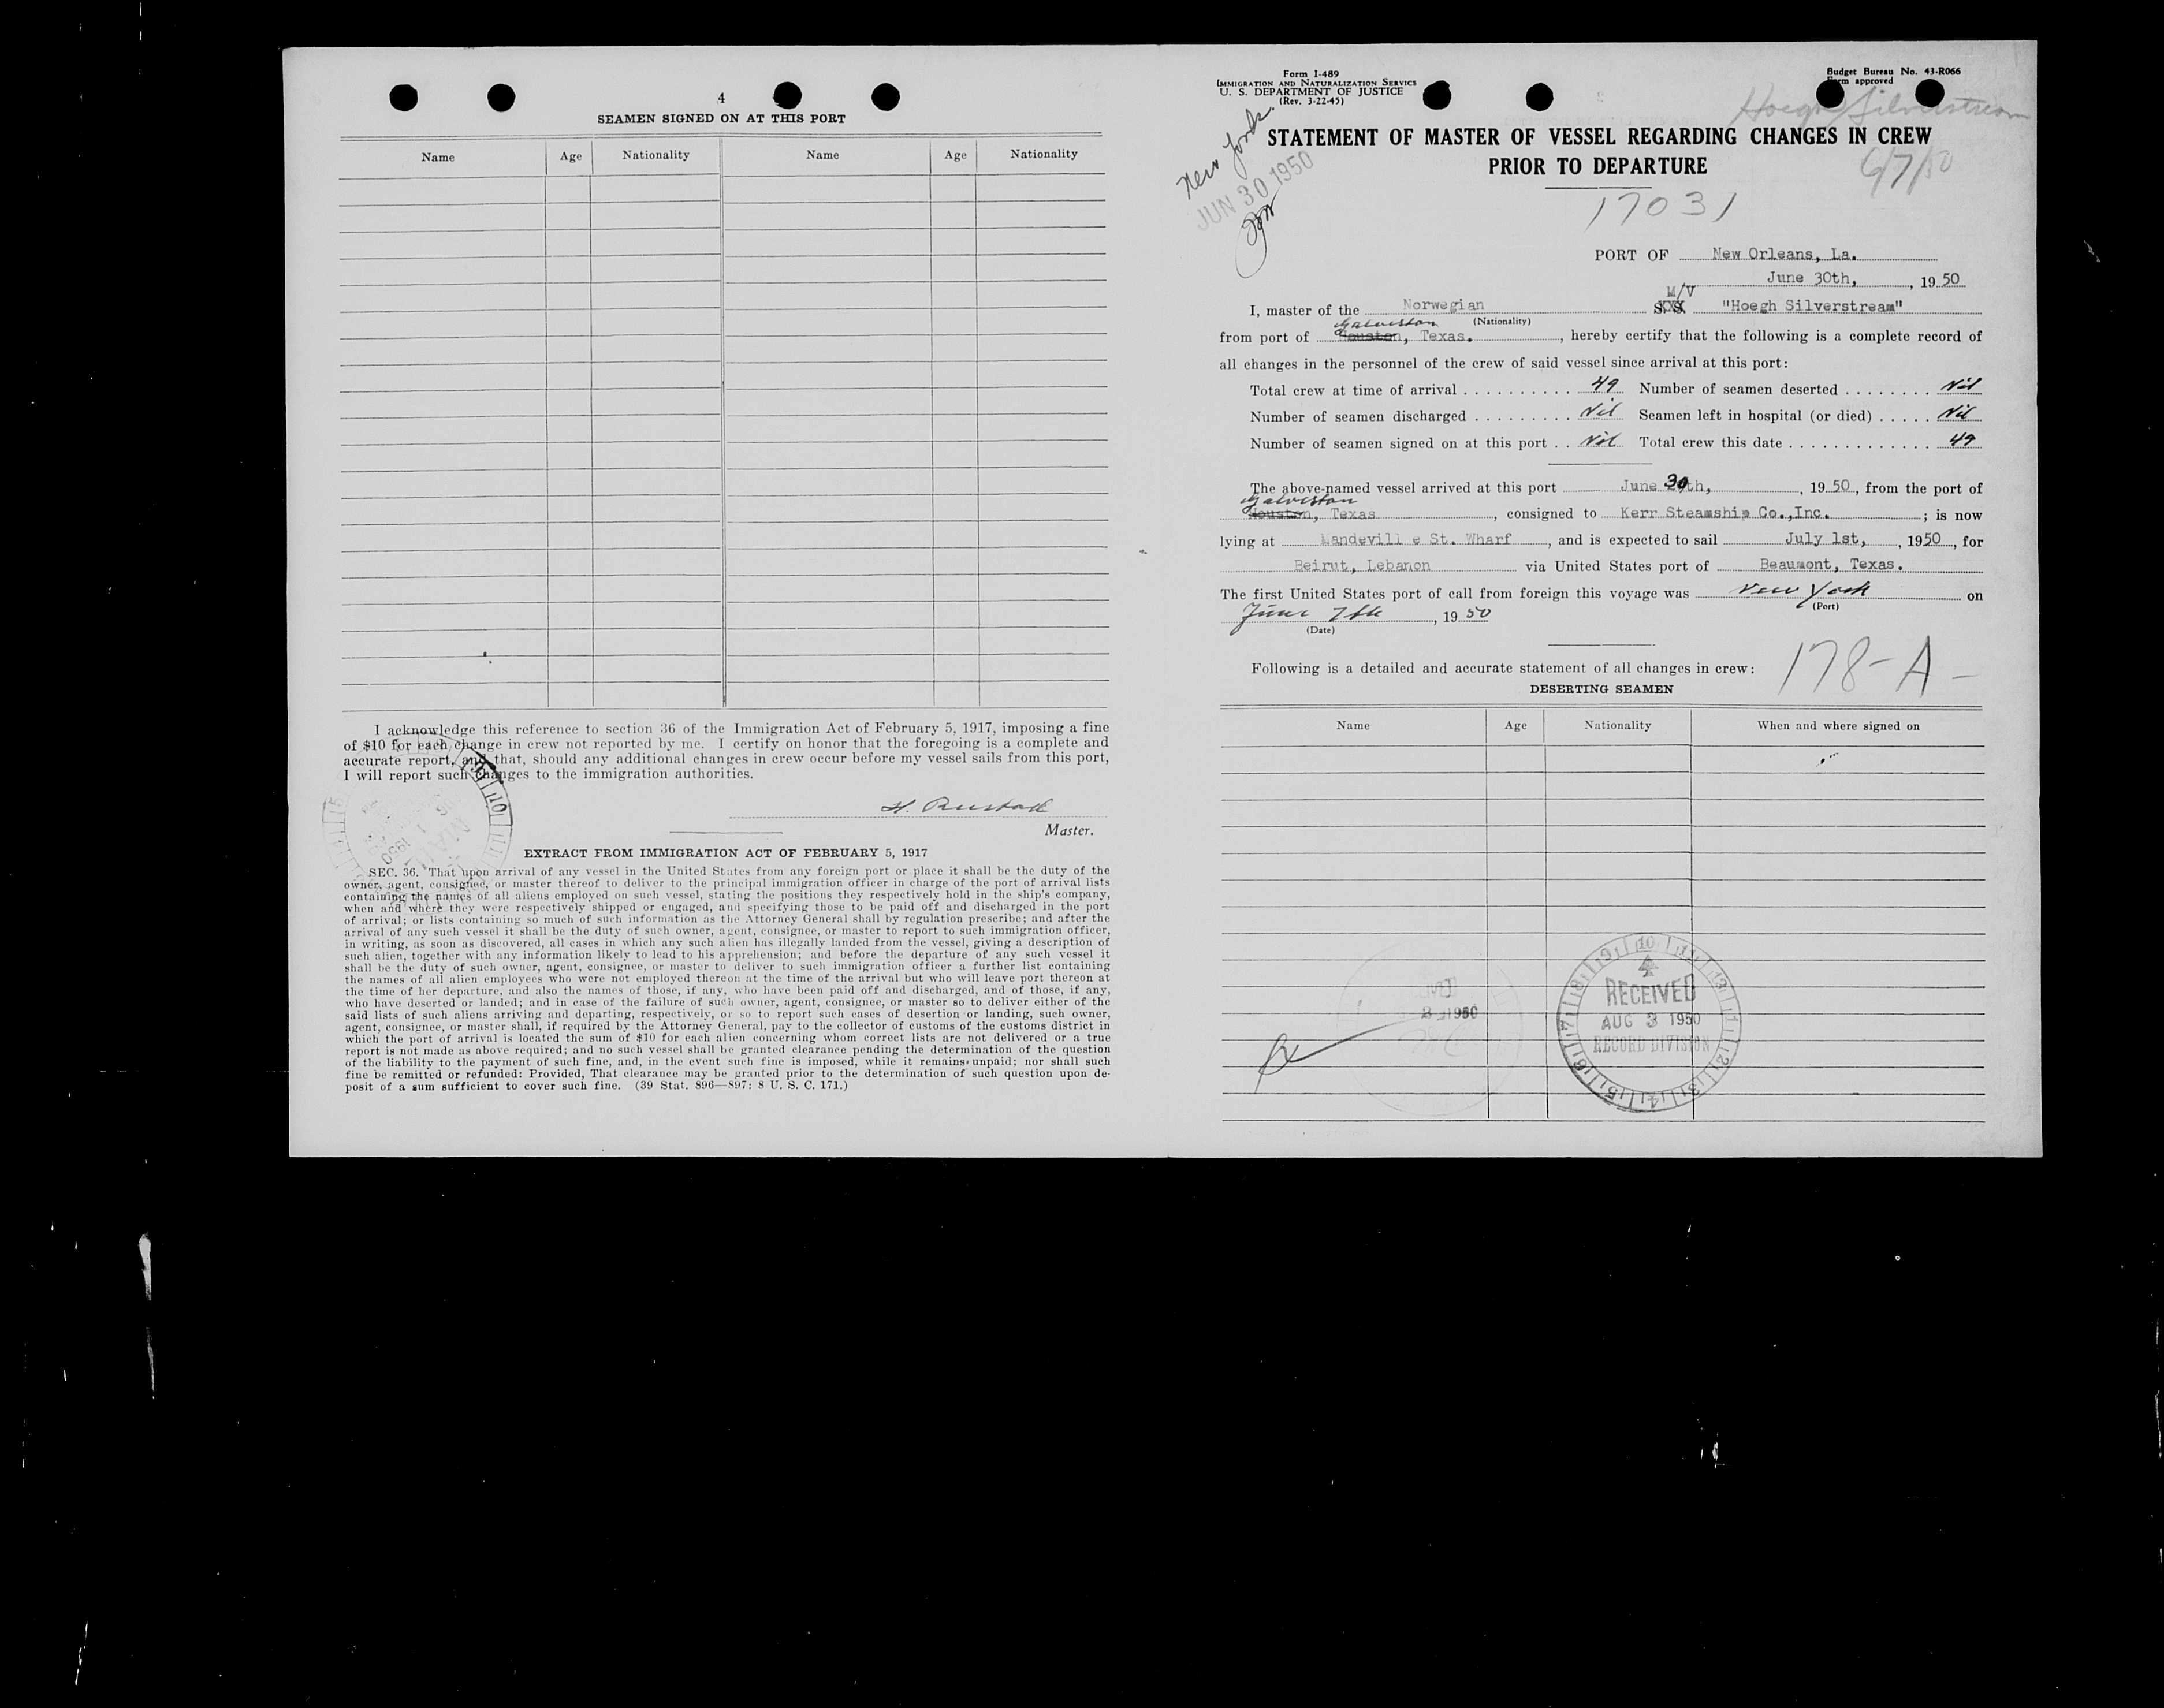 4
SEAMEN SIGNED ON AT THIS PORT
Name Age Nationality Name Age Nationality
I acknowledge this reference to section 36 of the Immigration Act of February 5, 1917, imposing a fine
of $10 for each change in crew not reported by me. I certify on honor that the foregoing is a complete and
accurate report, and that, should any additional changes in crew occur before my vessel sails from this port,
I will report such changes to the immigration authorities.
H. Rustad
Master.
EXTRACT FROM IMMIGRATION ACT OF FEBRUARY 5, 1917
SEC. 36. That upon arrival of any vessel in the United States from any foreign port or place it shall be the duty of the
owner, agent, consignee, or master thereof to deliver to the principal immigration officer in charge of the port of arrival lists
containing the names of all aliens employed on such vessel, stating the positions they respectively hold in the ship's company,
when and where they were respectively shipped or engaged, and specifying those to be paid off and discharged in the port
of arrival; or lists containing so much of such information as the Attorney General shall by regulation prescribe; and after the
arrival of any such vessel it shall be the duty of such owner, agent, consignee, or master to report to such immigration officer,
in writing, as soon as discovered, all cases in which any such alien has illegally landed from the vessel, giving a description of
such alien, together with any information likely to lead to his apprehension; and before the departure of any such vessel it
shall be the duty of such owner, agent, consignee, or master to deliver to such immigration officer a further list containing
the names of all alien employees who were not employed thereon at the time of the arrival but who will leave port thereon at
the time of her departure, and also the names of those, if any, who have been paid off and discharged, and of those, if any,
who have deserted or landed; and in case of the failure of such owner, agent, consignee, or master so to deliver either of the
said lists of such aliens arriving and departing, respectively, or so to report such cases of desertion or landing, such owner,
agent, consignee, or master shall, if required by the Attorney General, pay to the collector of customs of the customs district in
which the port of arrival is located the sum of $10 for each alien concerning whom correct lists are not delivered or a true
report is not made as above required; and no such vessel shall be granted clearance pending the determination of the question
of the liability to the payment of such fine, and, in the event such fine is imposed, while it remains unpaid; nor shall such
fine be remitted or refunded: Provided, That clearance may be granted prior to the determination of such question upon de-
posit of a sum sufficient to cover such fine. (39 Stat. 896—897; 8 U. S. C. 171.)
Form I-489
IMMIGRATION AND NATURALIZATION SERVICE
U. S. DEPARTMENT OF JUSTICE
(Rev. 3-22-45)
Budget Bureau No. 43-R066
Form approved
Hoegh Silverstream
New York
JUN 30 1950
STATEMENT OF MASTER OF VESSEL REGARDING CHANGES IN CREW
PRIOR TO DEPARTURE
6/7/50
17031
PORT OF New Orleans, La.
June 30th, , 19 50
M/V
I, master of the Norwegian SXX "Hoegh Silverstream"
(Nationality)
Galveston
from port of Houston, Texas. , hereby certify that the following is a complete record of
all changes in the personnel of the crew of said vessel since arrival at this port:
Total crew at time of arrival . . . . . . . . . . 49 Number of seamen deserted . . . . . . . . Nil
Number of seamen discharged . . . . . . . . . Nil Seamen left in hospital (or died) . . . . . Nil
Number of seamen signed on at this port . . Nil Total crew this date . . . . . . . . . . . . . 49
The above-named vessel arrived at this port June 30th, , 19 50, from the port of
Galveston
Houston, Texas , consigned to Kerr Steamship Co.,Inc. ; is now
lying at Mandevill e St. Wharf , and is expected to sail July 1st, , 1950 , for
Beirut, Lebanon via United States port of Beaumont, Texas.
The first United States port of call from foreign this voyage was New York on
(Port)
June 7th , 19 50
(Date)
178-A-
Following is a detailed and accurate statement of all changes in crew:
DESERTING SEAMEN
Name Age Nationality When and where signed on
RECEIVED
AUG 3 1950
RECORD DIVISION